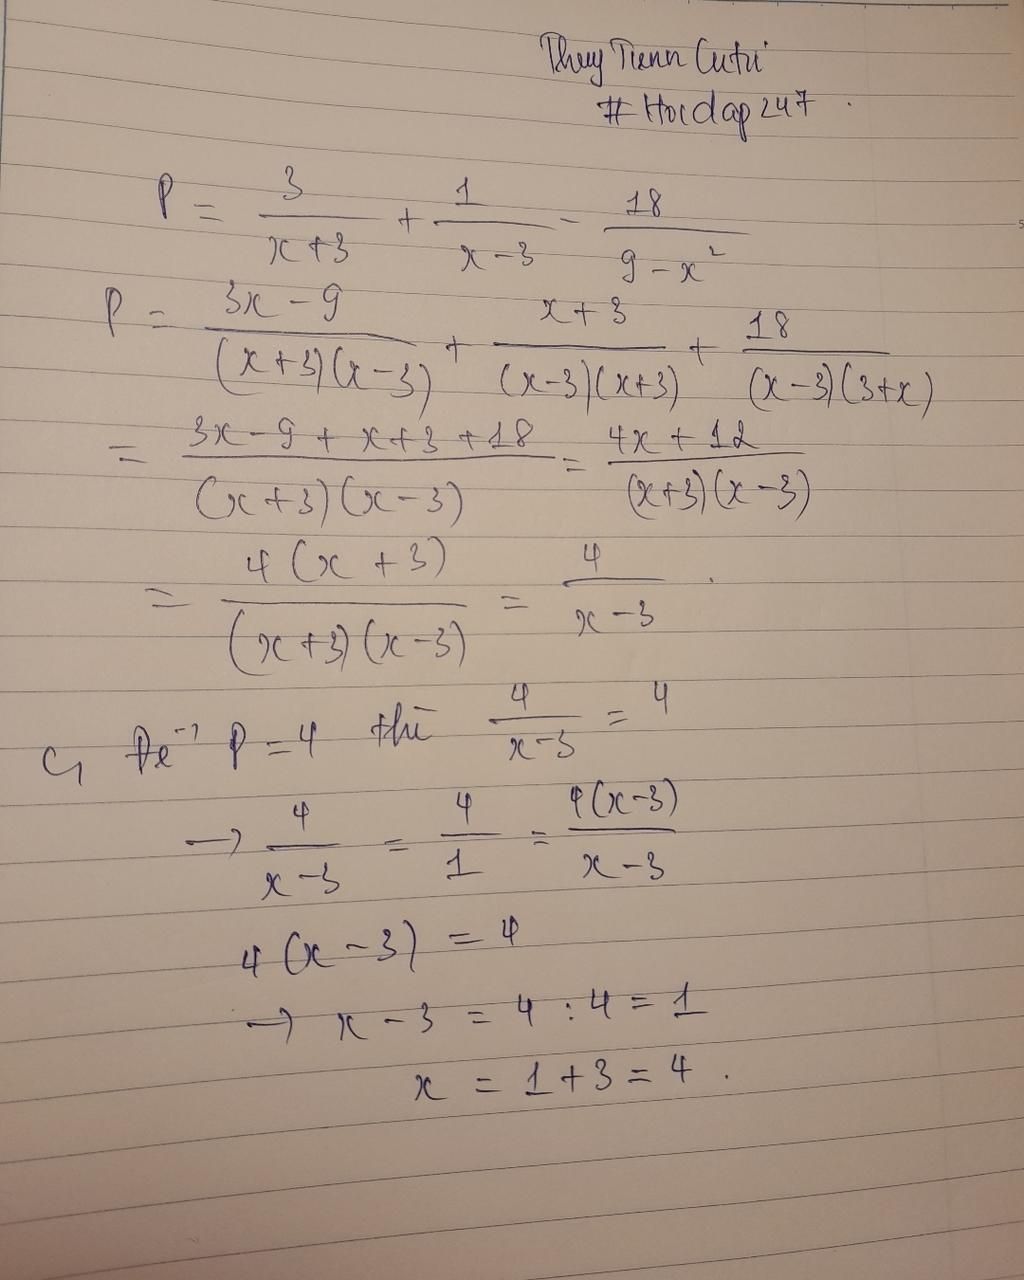 Thuy Tienn Cutii
# Hoidap247
P = 3/(x+3) + 1/(x-3) - 18/(9-x²)
P = (3x-9)/((x+3)(x-3)) + (x+3)/((x-3)(x+3)) + 18/((x-3)(3+x))
= (3x-9+x+3+18)/((x+3)(x-3)) = (4x+12)/((x+3)(x-3))
= 4(x+3)/((x+3)(x-3)) = 4/(x-3).
c, Để P = 4 thì 4/(x-3) = 4
→ 4/(x-3) = 4/1 = 4(x-3)/(x-3)
4(x-3) = 4
→ x - 3 = 4 : 4 = 1
x = 1 + 3 = 4.